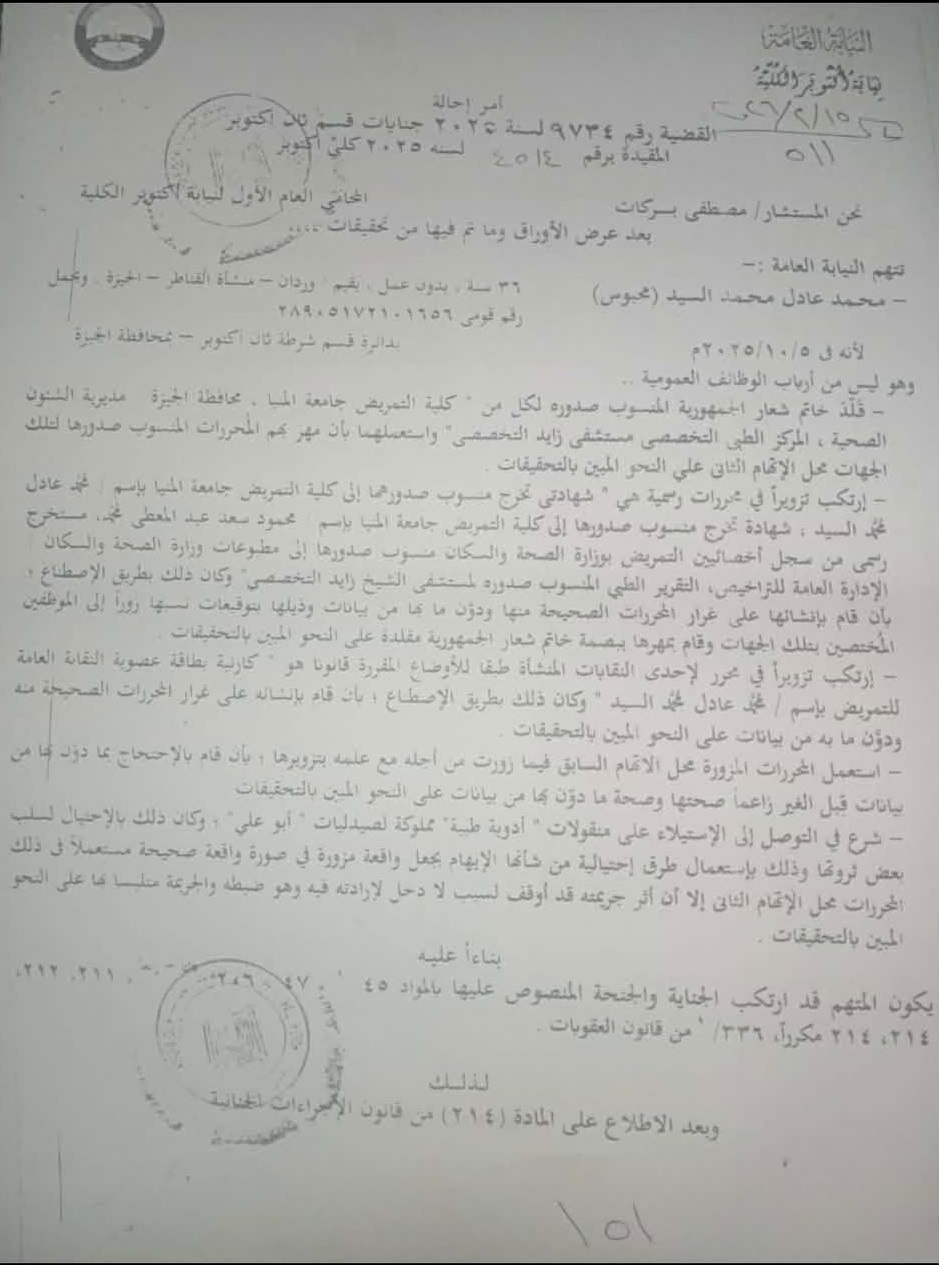 النيابة العامة
نيابة أكتوبر الكلية
أمر إحالة
القضية رقم ٩٧٣٤ لسنة ٢٠٢٥ جنايات قسم ثان أكتوبر
المقيدة برقم ٤٥١٤ لسنه ٢٠٢٥ كلي أكتوبر
٥١١
نحن المستشار/ مصطفى بركات المحامي العام الأول لنيابة أكتوبر الكلية
بعد عرض الأوراق وما تم فيها من تحقيقات ....
تتهم النيابة العامة :–
– محمد عادل محمد السيد (محبوس) ٣٦ سنة ، بدون عمل ، يقيم / وردان – منشأة القناطر – الجيزة . ويحمل
رقم قومى ٢٨٩٠٥١٧٢١٠١٦٥٦
لأنه في ٢٠٢٥/١٠/٥م بدائرة قسم شرطة ثان أكتوبر – بمحافظة الجيزة
وهو ليس من أرباب الوظائف العمومية ..
– قَلَّدَ خاتم شعار الجمهورية المنسوب صدوره لكل من " كلية التمريض جامعة المنيا ، محافظة الجيزة مديرية الشئون
الصحية ، المركز الطبى التخصصى مستشفى زايد التخصصى" واستعملهما بأن مهر بهم المحررات المنسوب صدورها لتلك
الجهات محل الإتهام الثانى علي النحو المبين بالتحقيقات .
– إرتكب تزويراً في محررات رسمية هي " شهادتى تخرج منسوب صدورهما إلى كلية التمريض جامعة المنيا بإسم / محمد عادل
محمد السيد ، شهادة تخرج منسوب صدورها إلى كلية التمريض جامعة المنيا بإسم / محمود سعد عبد المعطى محمد، مستخرج
رسمى من سجل أخصائيين التمريض بوزارة الصحة والسكان منسوب صدورها إلى مطبوعات وزارة الصحة والسكان /
الإدارة العامة للتراخيص، التقرير الطبي المنسوب صدوره لمستشفى الشيخ زايد التخصصي" وكان ذلك بطريق الإصطناع ؛
بأن قام بإنشائها على غرار المحررات الصحيحة منها ودوَّن ما بها من بيانات وذيلها بتوقيعات نسبها زوراً إلى الموظفين
المُختصين بتلك الجهات وقام بمهرها ببصمة خاتم شعار الجمهورية مقلدة على النحو المبين بالتحقيقات .
– إرتكب تزويراً في محرر لإحدى النقابات المنشأة طبقا للأوضاع المقررة قانونا هو " كارنية بطاقة عضوية النقابة العامة
للتمريض بإسم / محمد عادل محمد السيد " وكان ذلك بطريق الإصطناع ؛ بأن قام بإنشائه على غرار المحررات الصحيحة منه
ودوَّن ما به من بيانات على النحو المبين بالتحقيقات .
– استعمل المحررات المزورة محل الاتهام السابق فيما زورت من أجله مع علمه بتزويرها ؛ بأن قام بالإحتجاج بما دوّن بها من
بيانات قِبل الغير زاعماً صحتها وصحة ما دوّن بها من بيانات على النحو المبين بالتحقيقات
– شرع في التوصل إلى الإستيلاء على منقولات " أدوية طبية" مملوكة لصيدليات " أبو علي" ؛ وكان ذلك بالإحتيال لسلب
بعض ثروتها وذلك بإستعمال طرق إحتيالية من شأنها الإيهام بجعل واقعة مزورة في صورة واقعة صحيحة مستعملاً في ذلك
المحررات محل الإتهام الثانى إلا أن أثر جريمته قد أوقف لسبب لا دخل لإرادته فيه وهو ضبطه والجريمة متلبسا بها على النحو
المبين بالتحقيقات .
بناءاً عليه
يكون المتهم قد ارتكب الجناية والجنحة المنصوص عليها بالمواد ٤٥ ، ٤٧ ، ٢٠٦ ، ٢١١، ٢١٢،
٢١٤، ٢١٤ مكرراً، ٣٣٦/ ١ من قانون العقوبات .
لذلك
وبعد الاطلاع على المادة (٢١٤) من قانون الإجراءات الجنائية
١٥١